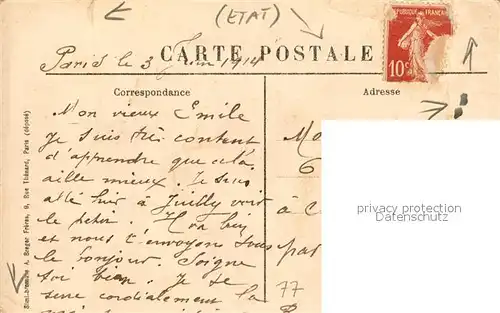 (ETAT)
Paris le 3 Juin 1914
CARTE POSTALE
RÉPUBLIQUE FRANÇAISE
10c
Correspondance
Adresse
Mon vieux Emile
Je suis très content
d'apprendre que cela
aille mieux. Je suis
allé hier à Juilly voir
le petit. Il va bien
et nous t'envoyons tous
le bonjour. Soigne
toi bien. Je te
serre cordialement la
Mo
6
à C
par
77
privacy protection
Datenschutz
Simi-bromure A. Breger Frères, 9, Rue Thénard, Paris (déposé)